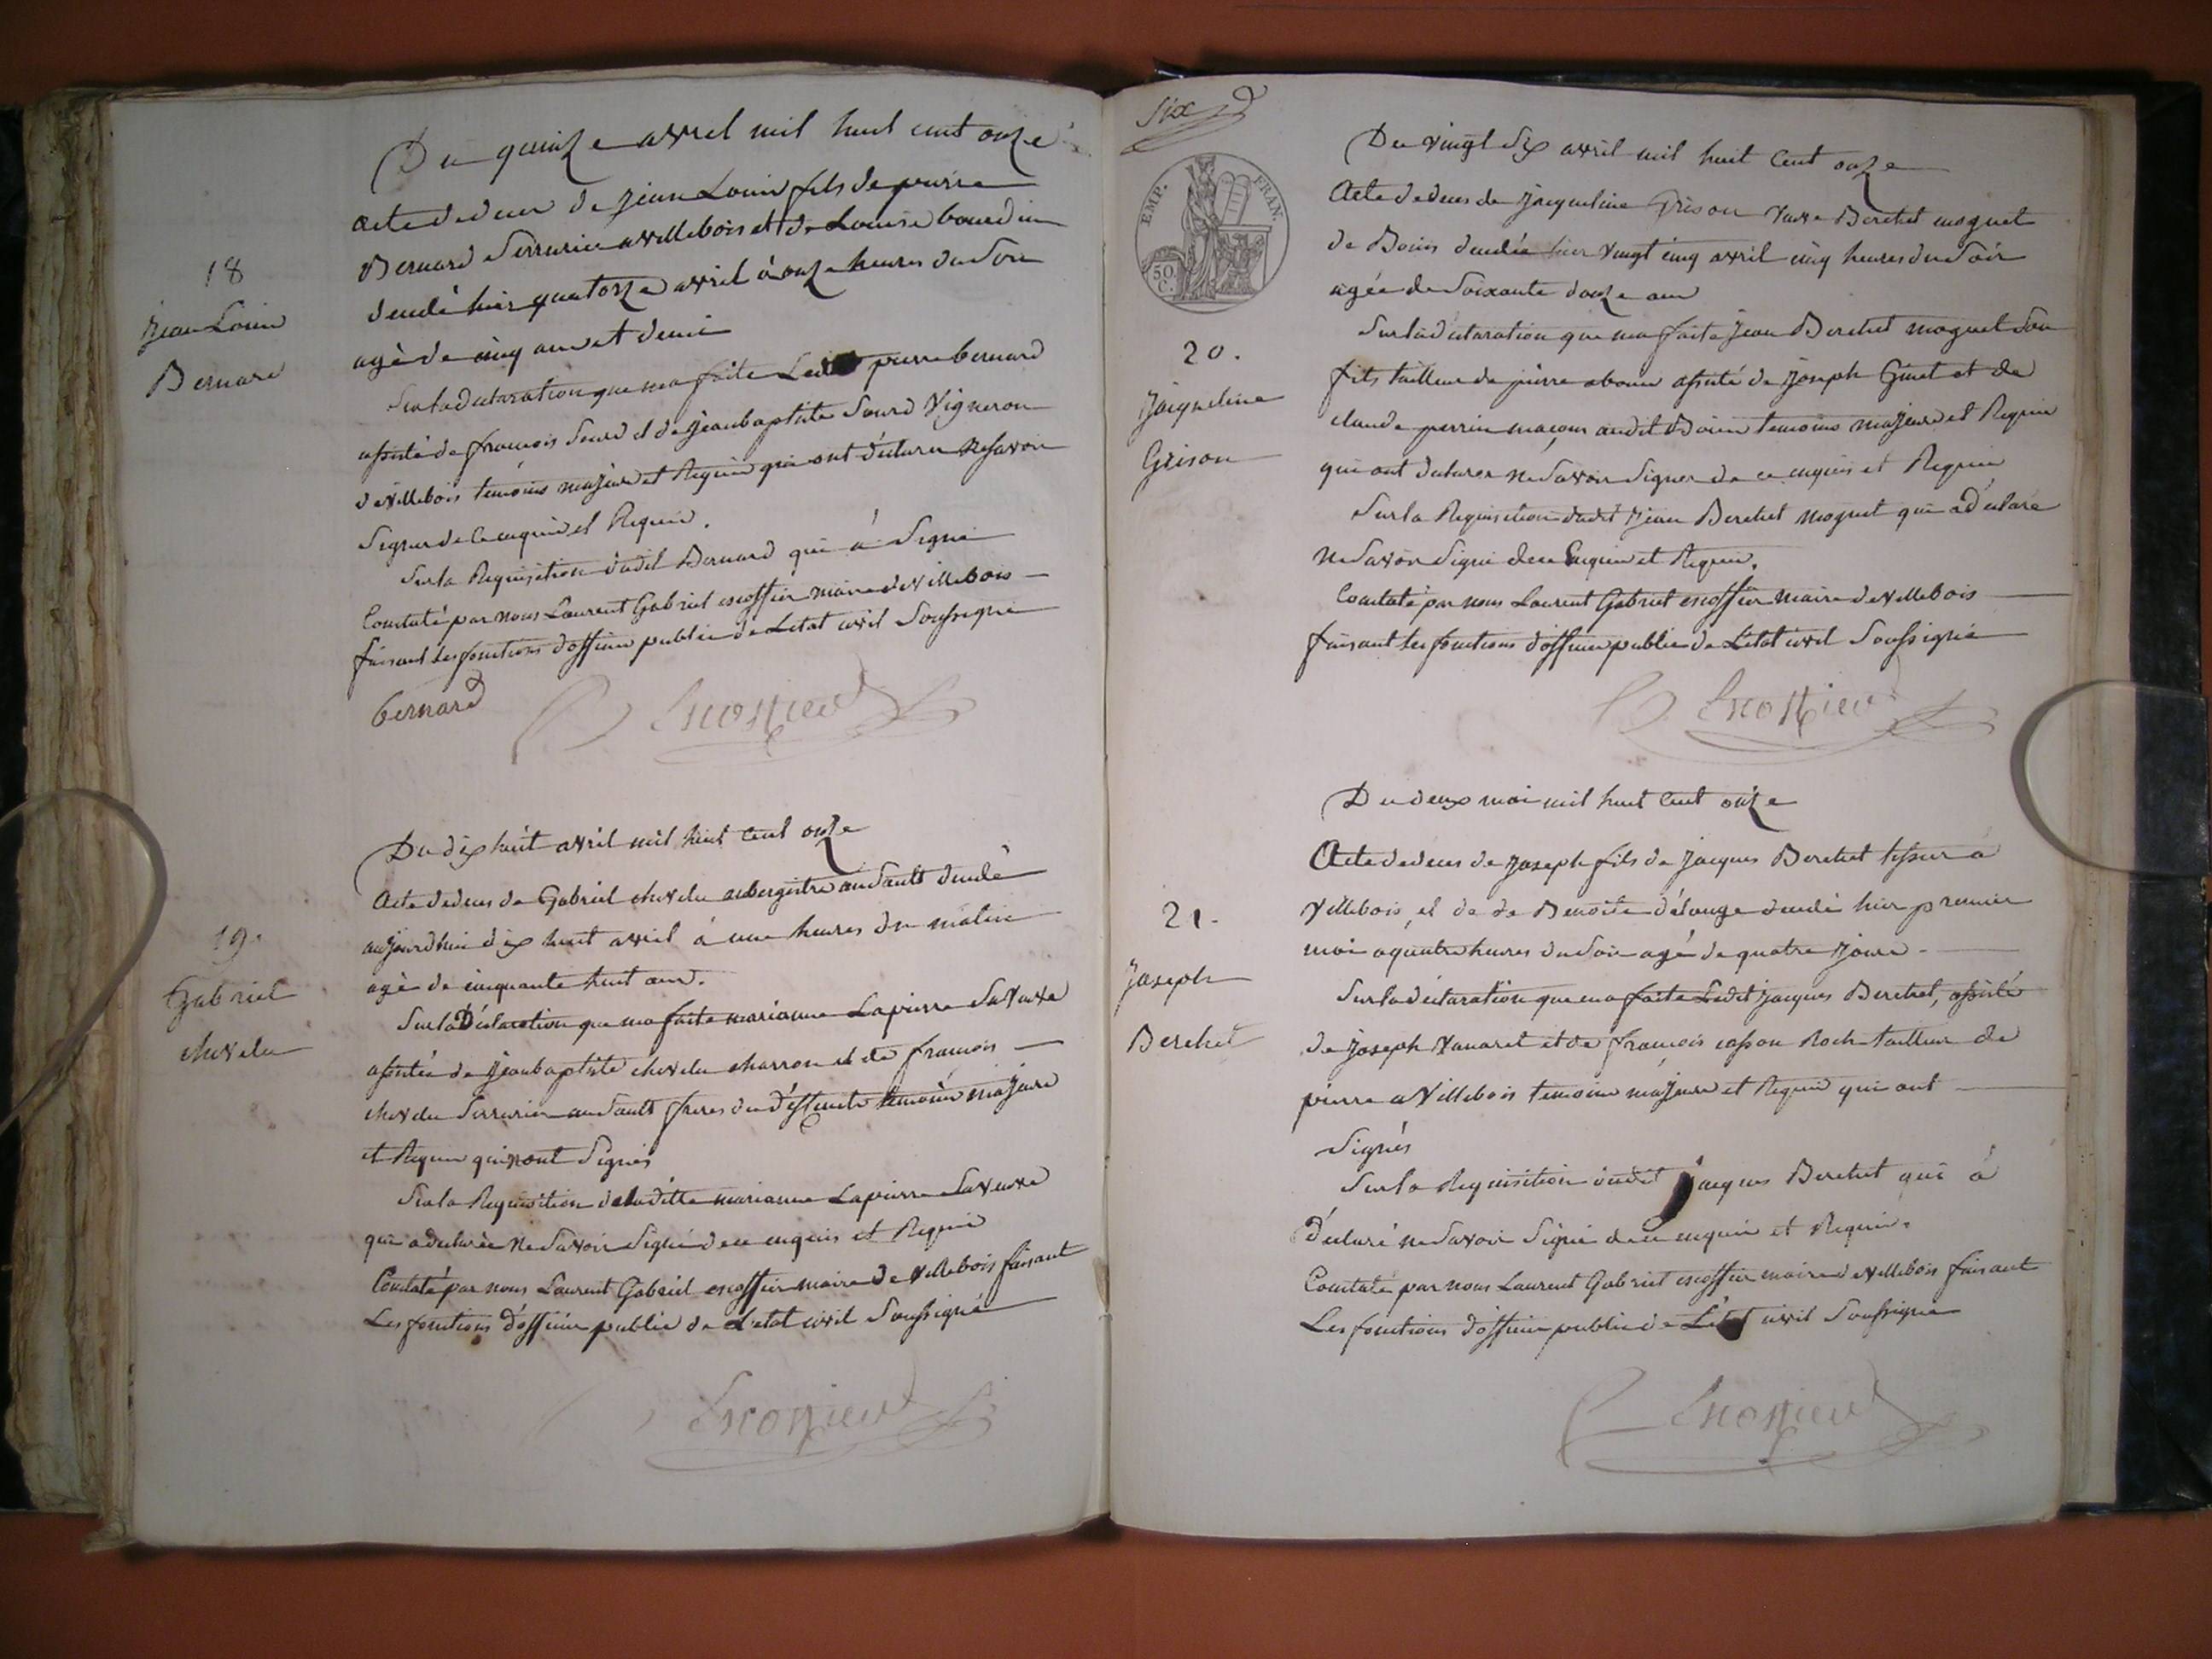 Du quinze avril mil huit cent onze
18
Jean Louis
Bernard
acte de deces de jean Louis fils de pierre
Bernard Serrurier a villebois et de Louise bourdin
decedé hier quatorze avril à onze heures du Soir
agé de cinq ans et demi
Sur la declaration que ma faite Ledit pierre bernard
assisté de francois Sourd et de jean baptiste Sourd Vigneron
de villebois temoins majeurs et Requis qui ont déclarer ne savoir
Signer de ce enquis et Requis.
Sur la Requisition dudit Bernard qui à Signé
Constaté par nous Laurent Gabriel escoffier maire de villebois
faisant les fonctions d'officier public de Letat civil Soussigné
bernard Escoffier
Du dix huit avril mil huit cent onze
19.
Gabriel
chevelu
Acte de deces de Gabriel chevelu aubergiste au Sault decedé
aujourdhui dix huit avril à une heures du matin
agé de cinquante huit ans.
Sur la Déclaration que ma faite marianne Lapierre Sa Veuve
assistée de jean baptiste chevelu charron et de francois
chevelu Serrurier au Sault freres du déffunt temoins majeurs
et Requis qui nont Signés
Sur la Requisition de la ditte marianne Lapierre Sa veuve
qui a declarée ne Savoir Signé de ce enquis et Requis
Constaté par nous Laurent Gabriel escoffier maire de villebois faisant
Les fonctions d'officier public de L'etat civil Soussigné
Escoffier
Six
EMP. FRAN.
50 C.
Du vingt Six avril mil huit Cent onze
20.
Jacqueline
Grison
Acte de deces de jacqueline Grison Veuve Berchet moguet
de Bouis decedée hier vingt cinq avril cinq heures du Soir
agée de Soixante douze ans
Sur la declaration que ma faite jean Berchet moguet Son
fils tailleur de pierre a bouis assisté de joseph Ginet et de
claude perrin maçons audit Bouis temoins majeurs et Requis
qui ont declarer ne Savoir Signer de ce enquis et Requis
Sur la Requisition dudit jean Berchet moguet qui a déclaré
ne Savoir Signé de ce Enquis et Requis.
Constaté par nous Laurent Gabriel escoffier maire de villebois
faisant les fonctions d'officier public de L'état civil Soussigné
Escoffier
Du deux mai mil huit Cent onze
21.
Joseph
Berchet
Acte de deces de joseph fils de jacques Berchet tisseur à
villebois, et de de Benoite délouge decedé hier premier
mai a quatre heures du Soir agé de quatre jours
Sur la déclaration que ma faite Ledit jacques Berchet, assisté
de joseph Vanaret et de francois casson Roch tailleur de
pierre a Villebois temoins majeurs et Requis qui ont
Signés
Sur la Requisition dudit jacques Berchet qui à
déclaré ne Savoir Signé de ce enquis et Requis.
Constaté par nous Laurent Gabriel escoffier maire de villebois faisant
Les fonctions d'officier public de L'état civil Soussigné
Escoffier